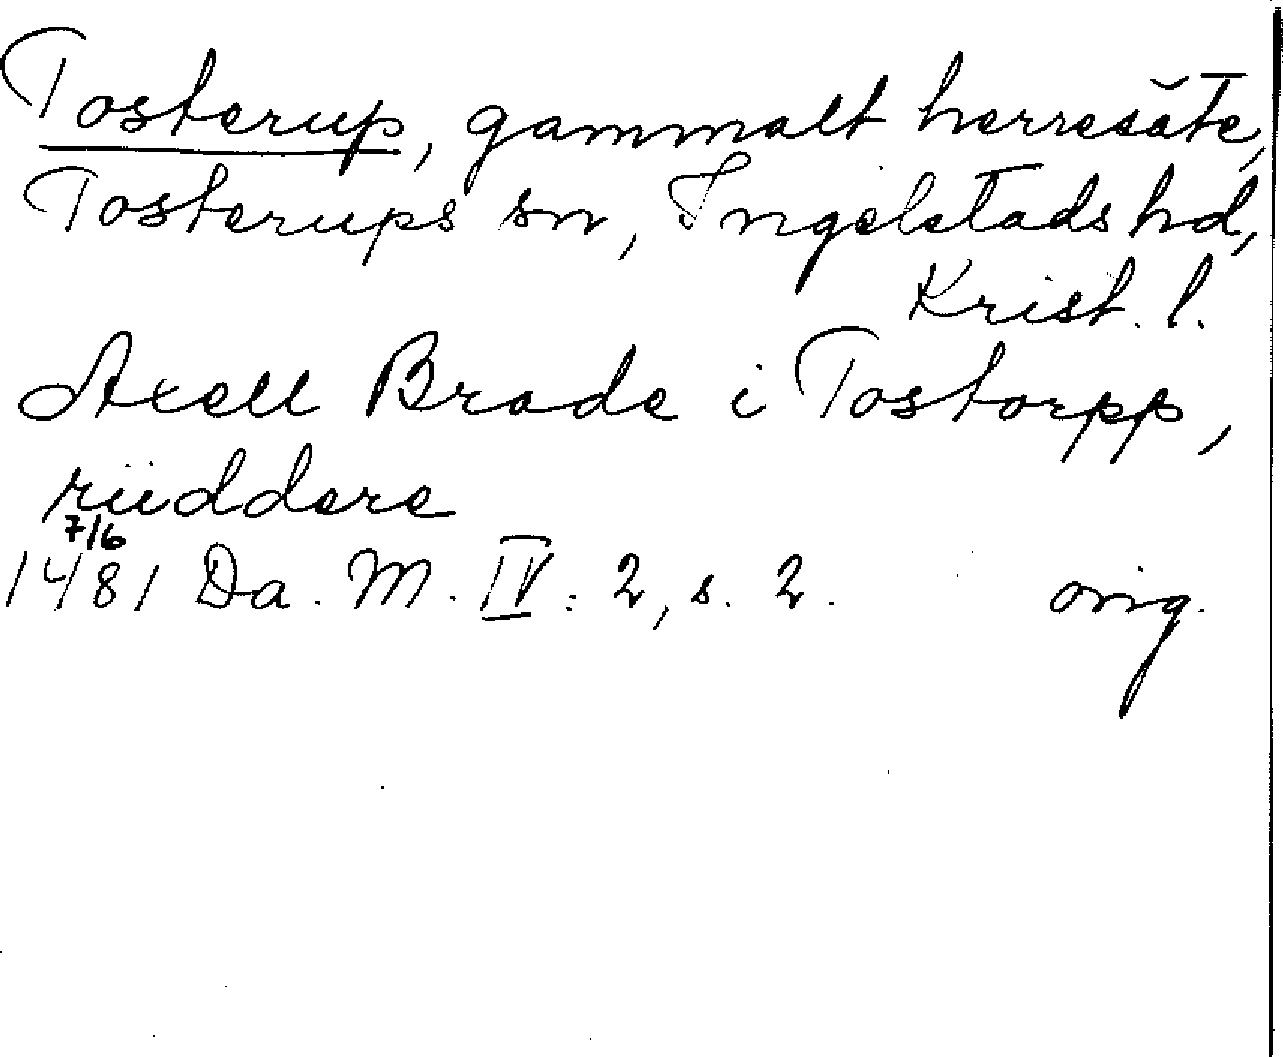 Tosterup, gammalt herresäte,
Tosterups sn, Ingelstads hd,
Krist. l.
Axell Brade i Tostorpp,
rüddere
7/6
1481 Da. M. IV: 2, s. 2. orig.